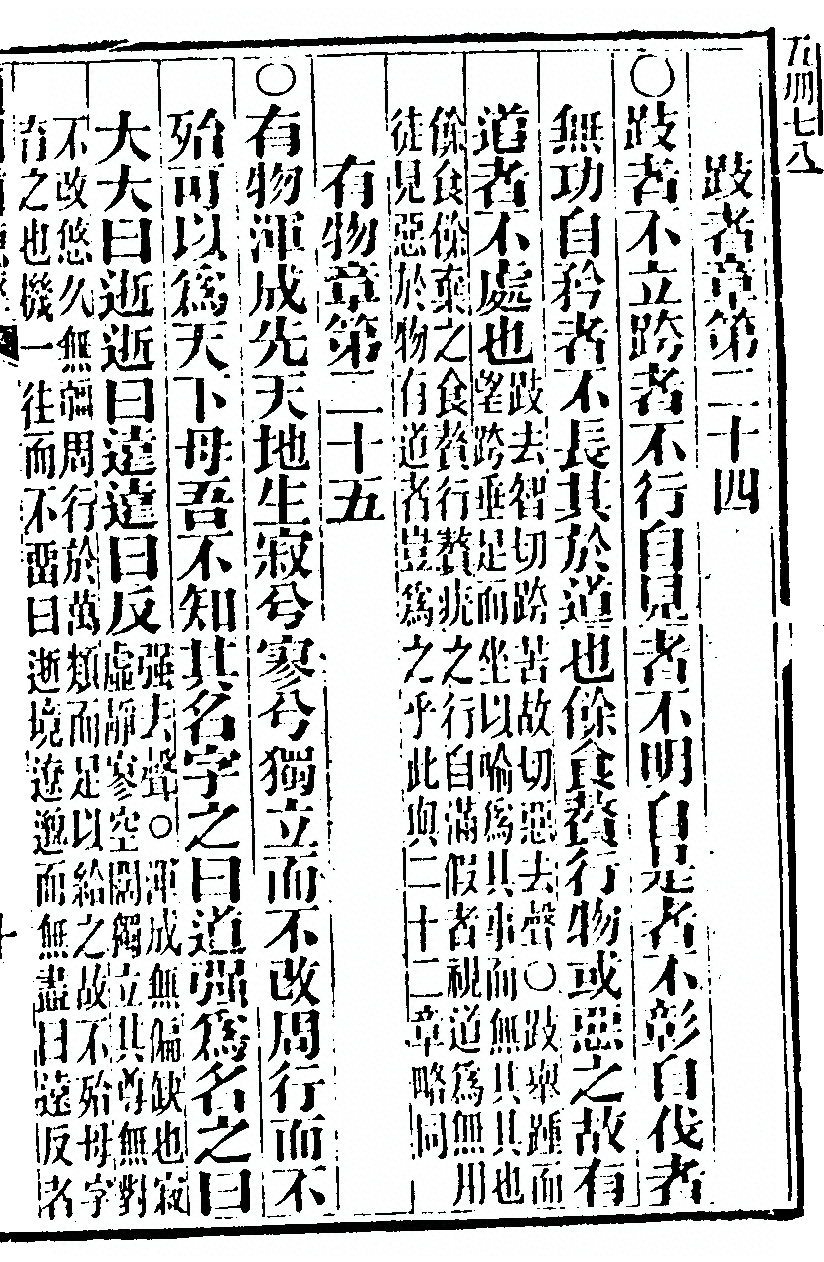 跂者章第二十四
〇跂者不立跨者不行自見者不明自是者不彰自伐者
無功自矜者不長其於道也餘食贅行物或惡之故有
道者不處也跂去智切跨苦故切惡去聲〇跂舉踵而
望跨垂足而坐以喻爲其事而無其具也
餘食餘棄之食贅行贅疣之行自滿假者視道爲無用
徒見惡於物有道者豈爲之乎此與二十二章略同
有物章第二十五
〇有物渾成先天地生寂兮寥兮獨立而不改周行而不
殆可以爲天下母吾不知其名字之曰道强爲名之曰
大大曰逝逝曰遠遠曰反强去聲〇渾成無偏缺也寂
虛靜寥空闊獨立其尊無對
不改悠久無疆周行於萬類而足以給之故不殆母字
育之也機一往而不畱曰逝境遼邈而無盡曰遠反者